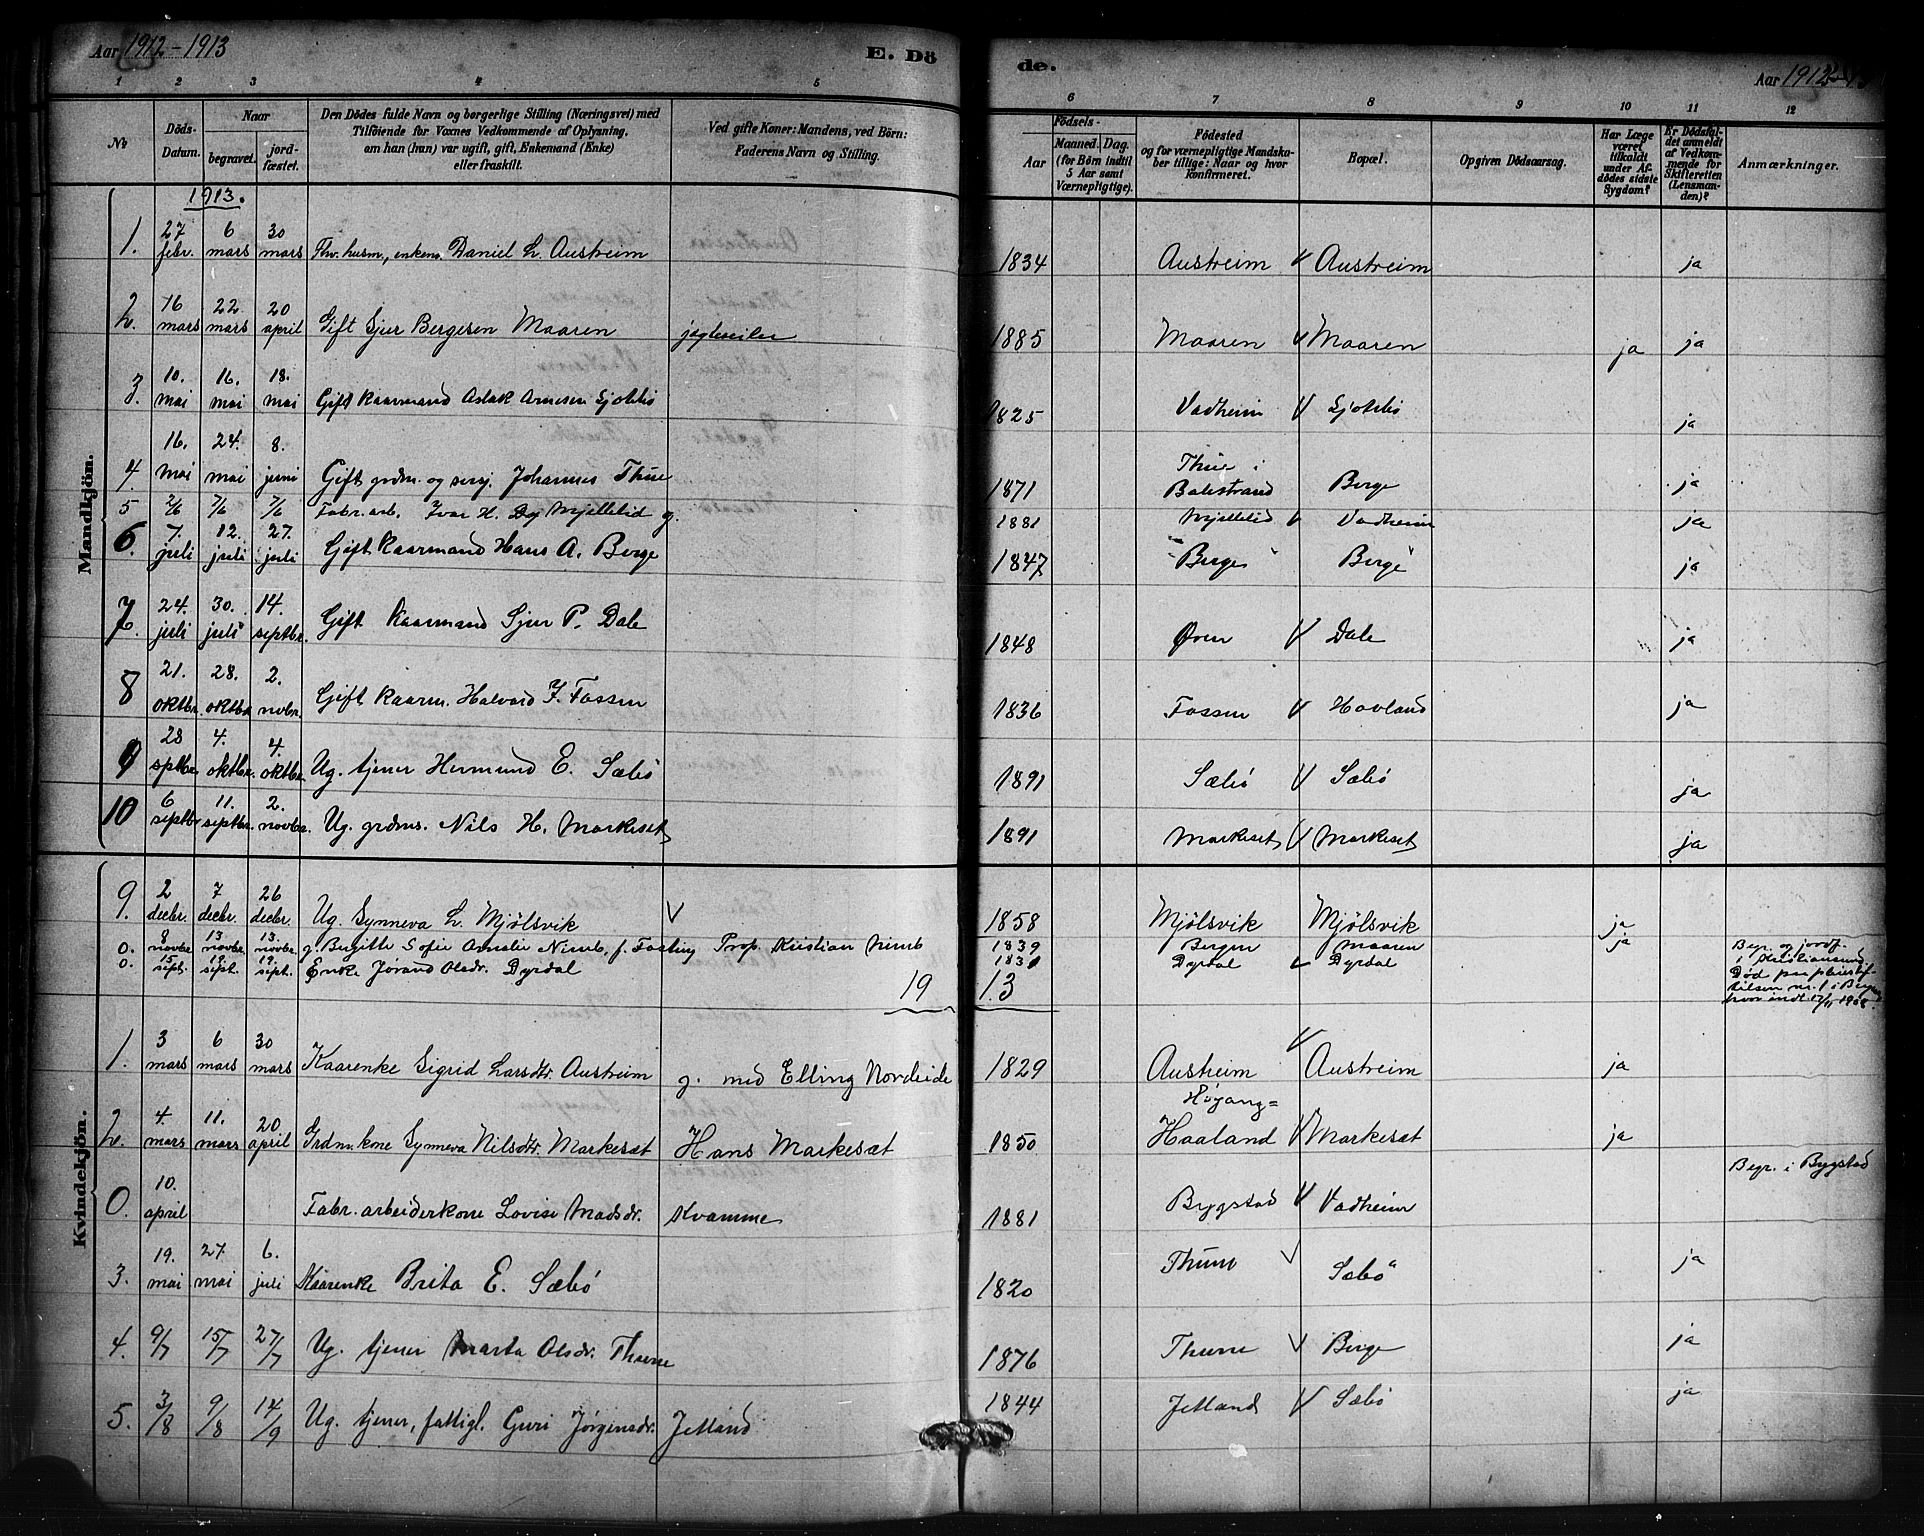 Aar 1912-1913 E. Dö de. Aar 1912-13
1 2 3 4 5 6 7 8 9 10 11 12
No Döds-Datum. Naar begravet. jordfæstet. Den Dödes fulde Navn og borgerlige Stilling (Næringsvei) med Tilföiende for Voxnes Vedkommende af Oplysning, om han (hun) var ugift, gift, Enkemand (Enke) eller fraskilt. Ved gifte Koner: Mandens, ved Börn: Faderens Navn og Stilling. Födsels- Aar Maaned. Dag. (for Börn indtil 5 Aar samt Værnepligtige). Födested og for værnepligtige Mandskaber tillige: Naar og hvor konfirmeret. Bopæl. Opgiven Dödsaarsag. Har Læge været tilkaldt under Afdödes sidste Sygdom? Er Dödsfaldet anmeldt af Vedkommende for Skifteretten (Lensmanden)? Anmærkninger.
Mandkjön.
1913.
1. 27 febr. 6 mars 30 mars Fhv. husm., enkem. Daniel L. Austreim 1834 Austreim V Austreim ja
2. 16 mars 22. mars 20 april Gift Sjur Bergesen Maaren jagteseiler 1885 Maaren V Maaren ja ja
3. 10. mai 16. mai 18. mai Gift kaarmand Aslak Arnesen 1825 Vadheim V ja
4. 16. mai 24. mai 8. juni Gift grdm. og sersj. Johannes Thue 1871 Thue i Balestrand Berge ja
5 2/6 7/6 7/6 Fabr. arb. Ivar H. Mjelletid g. 1881 Mjelletid V Vadheim ja
6. 7. juli 12. juli 27. juli Gift kaarmand Hans A. Berge 1847 Berge Berge ja
7. 24. juli 30. juli 14. septbr. Gift kaarmand Sjur P. Dale 1848 Øren V Dale ja
8 21. oktbr. 28. oktbr. 2. novbr. Gift kaarm. Halvard J. Fossen 1836 Fossen V Hovland ja
9 28 sptbr. 4. oktbr. 4. oktbr. Ug. tjener Hermund E. Sæbö 1891 Sæbö V Sæbö ja
10 6 septbr 11. septbr. 2. novbr. Ug. grdms. Nils H. Markeset 1891 Markeset V Markeset ja
Kvindekjön.
9. 2 decbr. 7 decbr. 26 decbr. Ug. Synneva L. Mjølsvik V 1858 Mjølsvik Mjølsvik ja
0. 8 novbr. 13 novbr. 13. novbr. g. Birgitte Sofie Amalie Nimb, f. Fasting Prop. Kristian Nimb 1839 Bergen Maaren ja Begr. og jordf. i Kristiansund
0. 15 sept. 19. sept. 19. sept. Enke Jørand Olsdr. Dyrdal 1831 Dyrdal V Dyrdal Død paa pleiestiftelsen nr. 1 i Bergen hvor indt. 17/11 1908.
19 13
1. 3 mars 6 mars 30 mars Kaarenke Sigrid Larsdtr. Austreim g. med Elling Nordeide 1829 Austreim V Austreim ja
2. 4. mars 11. mars 20 april Grdm. kone Synneva Nilsdtr. Markesæt Hans Markesæt 1850 Høyang= Haaland V Markesæt ja
0. 10. april Fabr. arbeiderkone Lovise Madsdr. Kvamme 1881 Bygstad V Vadheim Begr. i Bygstad
3. 19. mai 27. mai 6. juli Kaarenke Brita E. Sæbö 1820 V Sæbö ja
4. 9/7 15/7 27/7 Ug. tjener Marta Olsdr. Thune 1876 Thune V Berge ja
5. 3/8 9/8 14/9 Ug. tjener, fattigl. Guri Jørgensdr. Jetland 1844 Jetland V Sæbö ja